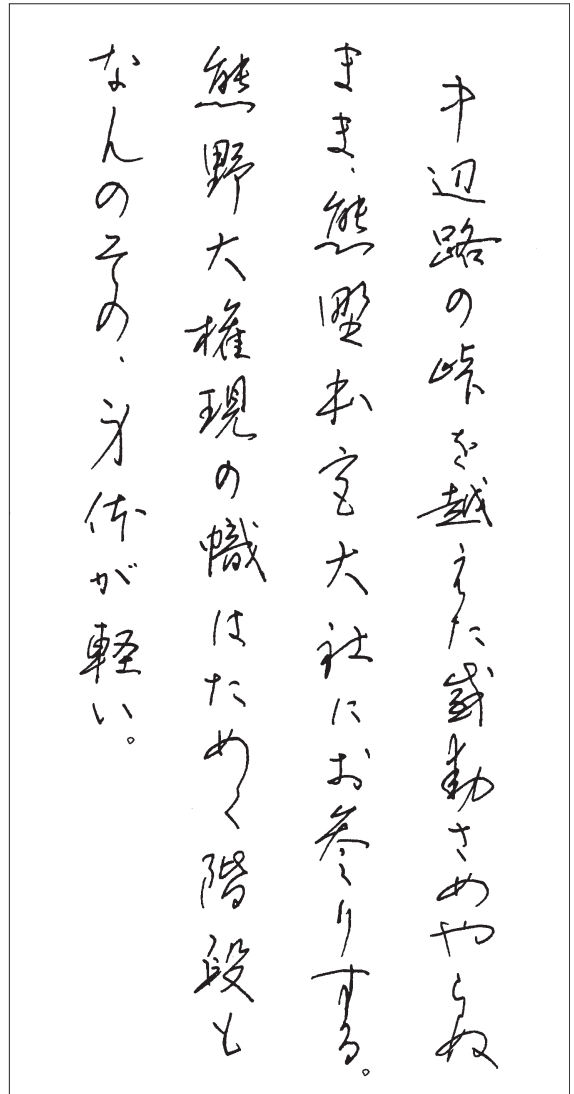 中辺路の峠を越えた感動さめやらぬ
まま、熊野本宮大社にお参りする。
熊野大権現の幟はためく階段も
なんのその、身体が軽い。